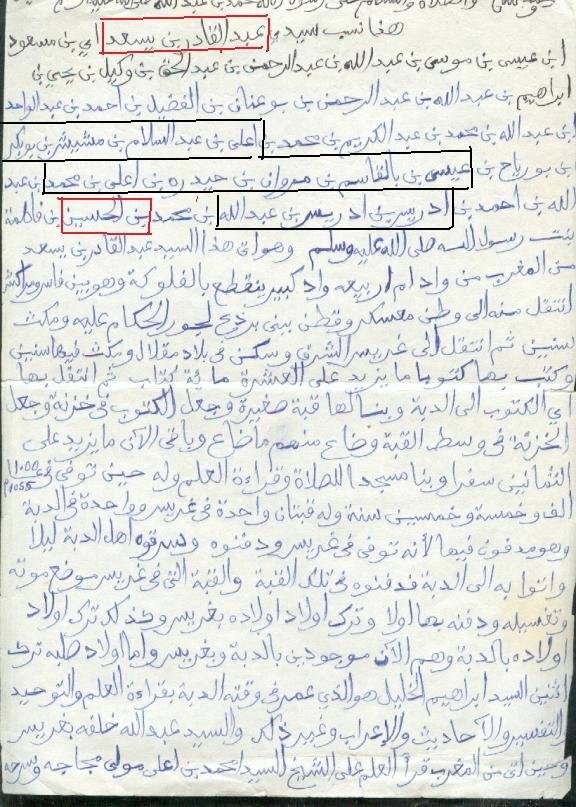 هذا نسب سيدي عبد القادر بن يسعد ابي بن مسعود
ابن عيسى بن موسى بن عبد الله بن عبد الرحمن بن عبد الحق بن وكيل بن يحيى بن
ابراهيم بن عبد الله بن عبد الرحمن بن بوعنان بن الفضيل بن احمد بن عبد الواحد
ابن عبد الله بن محمد بن عبد الكريم بن محمد بن اعلى بن عبد السلام بن مشيش بن بوبكر
ابن بورياح بن عيسى بن بالقاسم بن مروان بن حيدره بن اعلى بن محمد بن عبد
الله بن احمد بن ادريس بن ادريس بن عبد الله بن محمد بن الحسين بن فاطمة
بنت رسول الله صلى الله عليه وسلم وهو اتى هذا السيد عبد القادر بن يسعد
من المغرب من واد ام اربيعه واد كبير ينقطع بالفلوكة وهو بين فاس ومراكش
انتقل منه الى وطن معسكر وقطن ببنى لجور الحكام عليه ومكث
سنين ثم انتقل الى غريس الشرق وسكن فى بلاد مقلال ومكث فيها سنين
وكتب بها كتوبا ما يزيد على العشرة مائة كتاب ثم انتقل بها
اي الكتوب الى الدبة وبنا لها قبة صغيرة وجعل الكتوب فى خزنة وجعل
الخزنة فى وسط القبة وضاع منهم ما ضاع وباقى الآن ما يزيد على
الثمانين سفرا وبنا مسجدا للصلاة وقراءة العلم وله حين توفى فى 1100
1055
الف وخمسة وخمسين سنة وله قبتان واحدة فى غريس وواحدة فى الدبة
وهو مدفون فيها لأنه توفى فى غريس ودفنوه وسرقوه اهل الدبة ليلا
واتوا به الى الدبة فدفنوه فى تلك القبة والقبة التى فى غريس موضع موته
وتغسيله ودفنه بها اولا وترك اولاد اولاده بغريس وكذلك ترك اولاد
اولاده بالدبة وهم الآن موجودين بالدبة وبغريس واما اولاد صلبه ترك
اثنين السيد ابراهيم الخليل هو الذي عمر فى وقته الدبة بقراءة العلم والتوحيد
والتفسير والآحاديث والإعراب وغير ذلك والسيد عبد الله خلفه بغريس
وحين اتى من المغرب قرأ العلم على الشيخ السيد امحمد بن اعلى مولى مجاجه